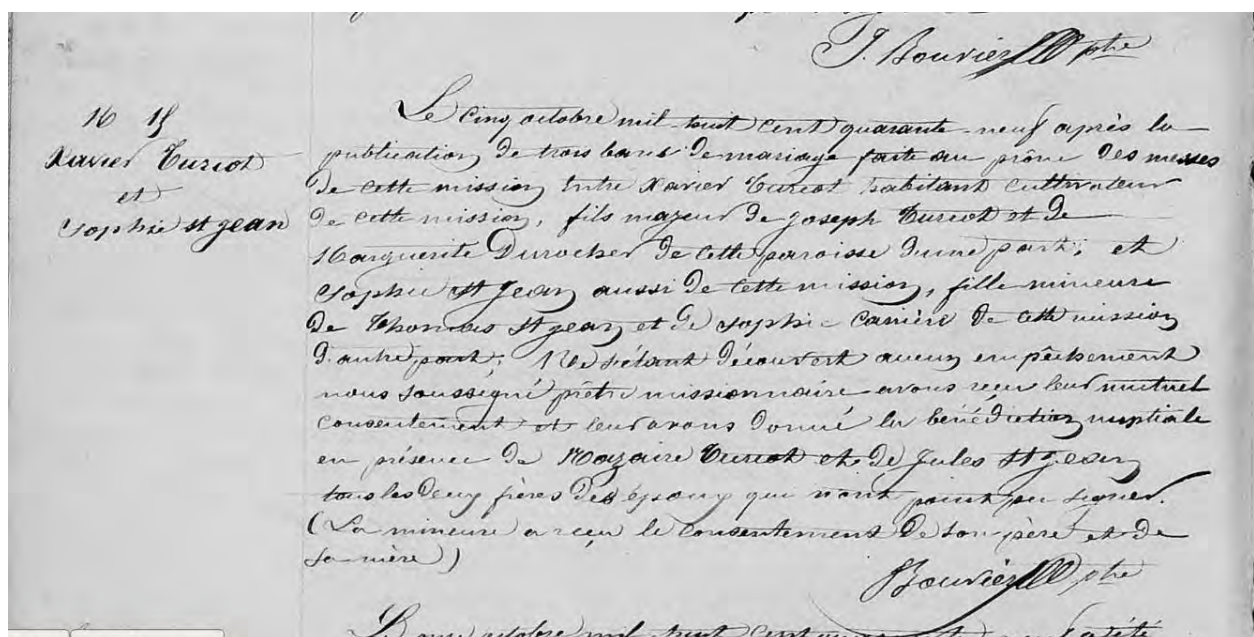 J. Bouvier ptre
M 15
Xavier Turcot
et
Sophie St Jean
Le cinq octobre mil huit cent quarante-neuf après la
publication de trois bans de mariage faite au prône des messes
de cette mission entre Xavier Turcot habitant cultivateur
de cette mission, fils majeur de Joseph Turcot et de
Marguerite Durocher de cette paroisse d'une part; et
Sophie St Jean aussi de cette mission, fille mineure
de Thomas St Jean et de Sophie Carrière de cette mission
d'autre part; Ne s'étant découvert aucun empêchement
nous soussigné prêtre missionnaire avons reçu leur mutuel
consentement et leur avons donné la bénédiction nuptiale
en présence de Nazaire Turcot et de Jules St Jean
tous les deux frères des époux qui n'ont point pu signer.
(La mineure a reçu le consentement de son père et de
sa mère)
Bouvier ptre
octobre mil huit cent